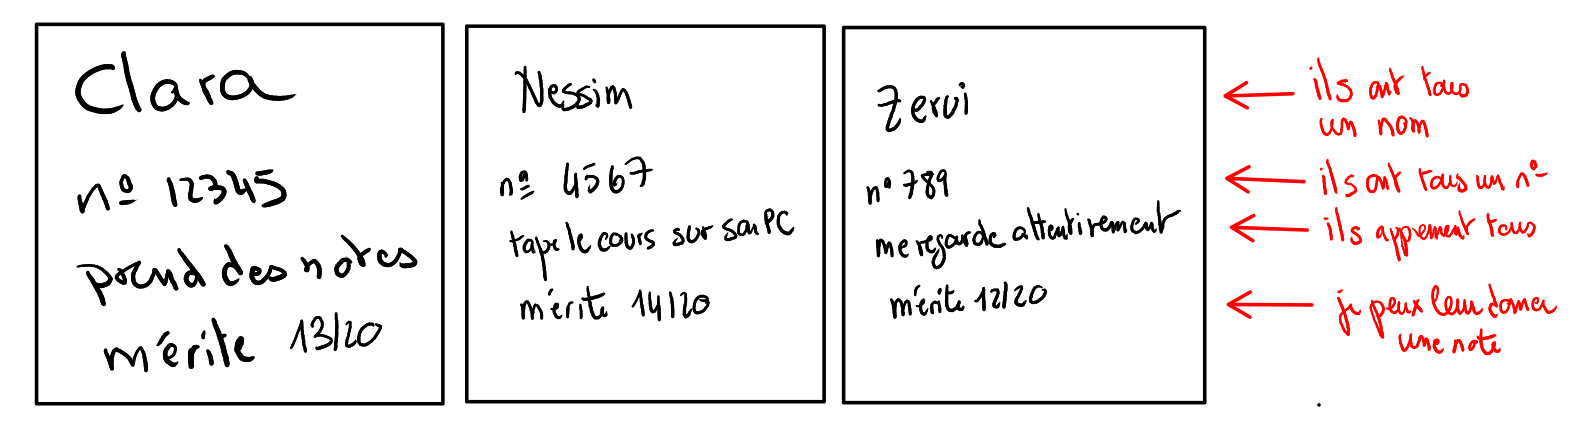 Clara
nº 12345
prend des notes
mérite 13/20
Nessim
nº 4567
tape le cours sur son PC
mérite 14/20
Zervi
nº 789
me regarde attentivement
mérite 12/20
ils ont tous
un nom
ils ont tous un nº
ils apprennent tous
je peux leur donner
une note